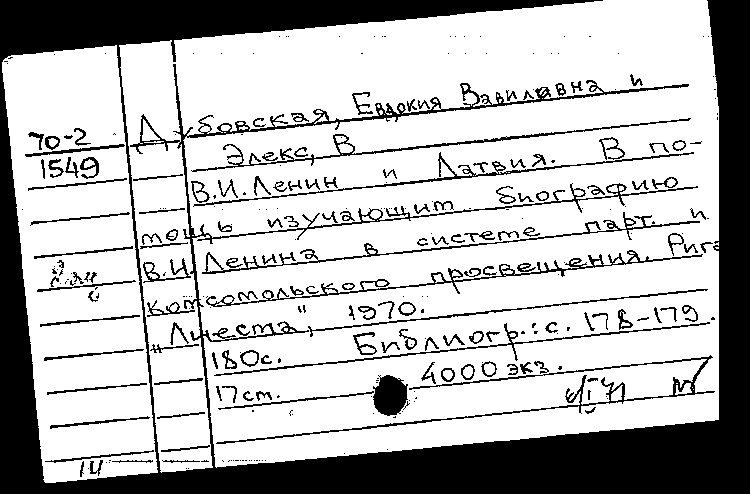 Дубовская, Евдокия Вавиловна и
70-2
Элекс, В
1549
В.И.Ленин и Латвия. В по-
мощь изучающим биографию
В.И.Ленина в системе парт. и
комсомольского просвещения. Рига
"Лиеста", 1970.
180с. Библиогр.: с. 178-179.
17 cm. 4000 экз.
14